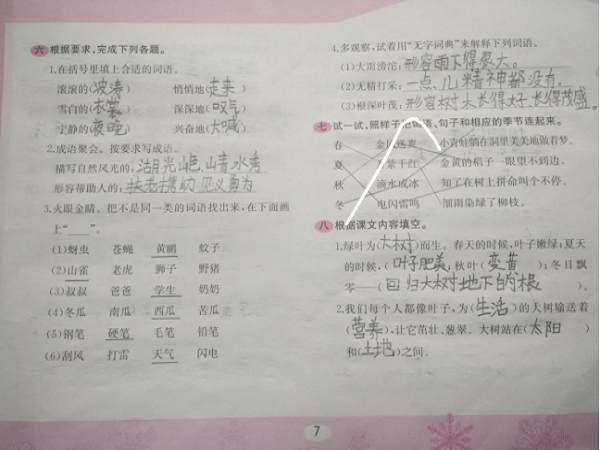 六 根据要求,完成下列各题。
1.在括号里填上合适的词语。
滚滚的(波涛) 悄悄地(走来)
雪白的(衣裳) 深深地(叹气)
宁静的(夜晚) 兴奋地(大喊)
2.成语聚会。按要求写成语。
描写自然风光的:湖光山色 山清水秀
形容帮助人的:扶老携幼 见义勇为
3.火眼金睛。把不是同一类的词语找出来,在下面画
上“____”。
(1)蚜虫 苍蝇 黄鹂 蚊子
(2)山雀 老虎 狮子 野猪
(3)叔叔 爸爸 学生 奶奶
(4)冬瓜 南瓜 西瓜 苦瓜
(5)钢笔 硬笔 毛笔 铅笔
(6)刮风 打雷 天气 闪电
4.多观察,试着用“无字词典”来解释下列词语。
(1)大雨滂沱:形容雨下得很大。
(2)无精打采:一点儿精神都没有。
(3)根深叶茂:形容树木长得好,长得茂盛。
七 试一试,照样子把词语、句子和相应的季节连起来。
春 金风送爽 小青蛙躺在洞里美美地做着梦。
夏 万紫千红 金黄的稻子一眼望不到边。
秋 滴水成冰 知了在树上拼命叫个不停。
冬 电闪雷鸣 细雨染绿了柳枝。
八 根据课文内容填空。
1.绿叶为(大树)而生。春天的时候,叶子嫩绿;夏天
的时候,(叶子肥美;秋叶(变黄);冬日飘
零——(回归大树地下的根)。
2.我们每个人都像叶子,为(生活)的大树输送着
(营养),让它茁壮、葱翠。大树站在(太阳)
和(土地)之间。
7